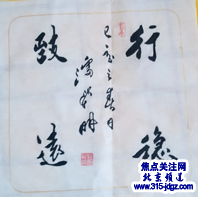 行稳
致远
己亥之春日
焦点关注网
北京频道
www.315-jdgz.com